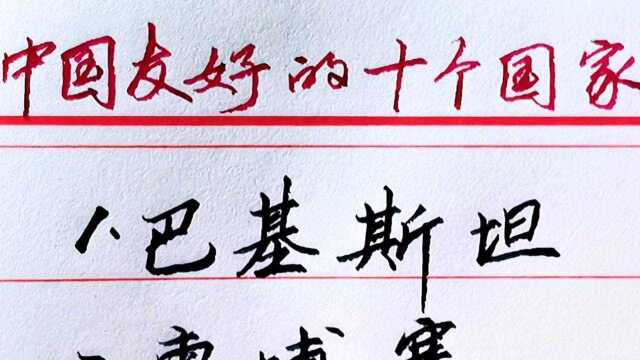 中国友好的十个国家
1、巴基斯坦
柬埔寨